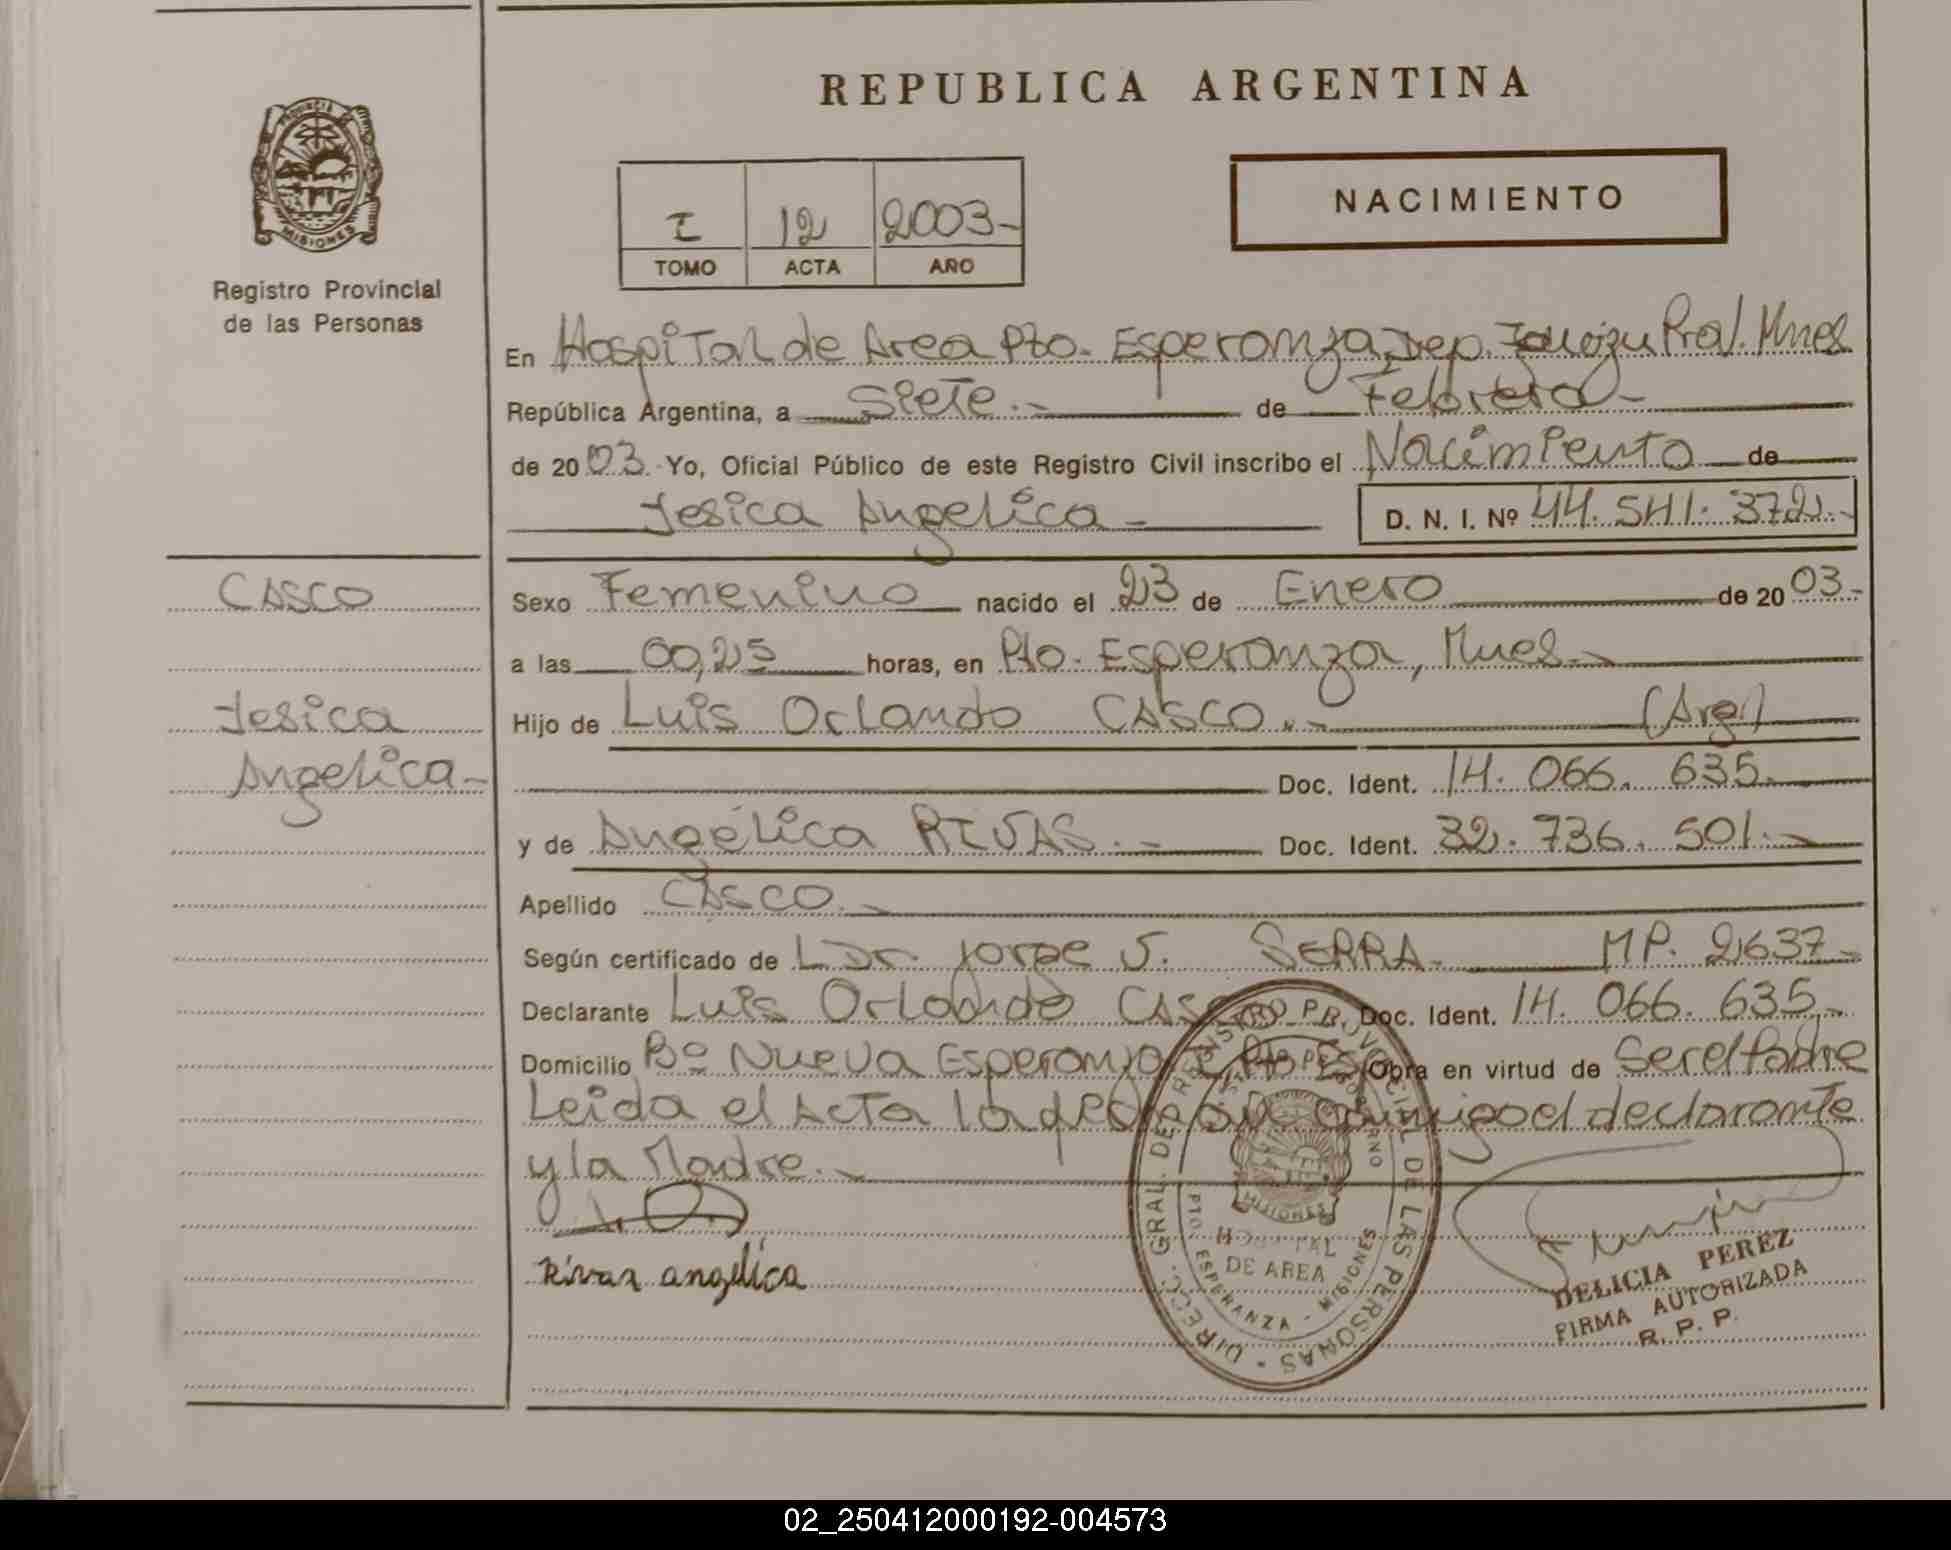 REPUBLICA ARGENTINA
PROVINCIA
MISIONES
Registro Provincial
de las Personas
I 12 2003-
TOMO ACTA AÑO
NACIMIENTO
En Hospital de Area Pto. Esperanza, Dep. Iguazu Prov. Mnes
República Argentina, a Siete.- de Febrero-
de 2003.- Yo, Oficial Público de este Registro Civil inscribo el Nacimiento de
Jesica Angelica- D. N. I. Nº 44.541.372.-
CASCO
Jesica
Angelica-
Sexo Femenino nacido el 23 de Enero de 2003-
a las 00,25 horas, en Pto. Esperanza, Mnes.-
Hijo de Luis Orlando CASCO.- (Arg.)
Doc. Ident. 14.066.635.
y de Angélica RIVAS.- Doc. Ident. 32.736.501.-
Apellido CASCO.-
Según certificado de Dr. Jorge J. SERRA- MP. 2637-
Declarante Luis Orlando CASCO Doc. Ident. 14.066.635.-
Domicilio Bº Nueva Esperanza Pto Esp Obra en virtud de Ser el Padre
Leida el Acta la firman conmigo el declarante
y la Madre.-
Rivas angelica
DIRECC. GRAL. DE REGISTRO PROVINCIAL DE LAS PERSONAS
MISIONES
HOSPITAL
DE AREA
PTO. ESPERANZA - MISIONES
DELICIA PEREZ
FIRMA AUTORIZADA
R. P. P.
02_250412000192-004573